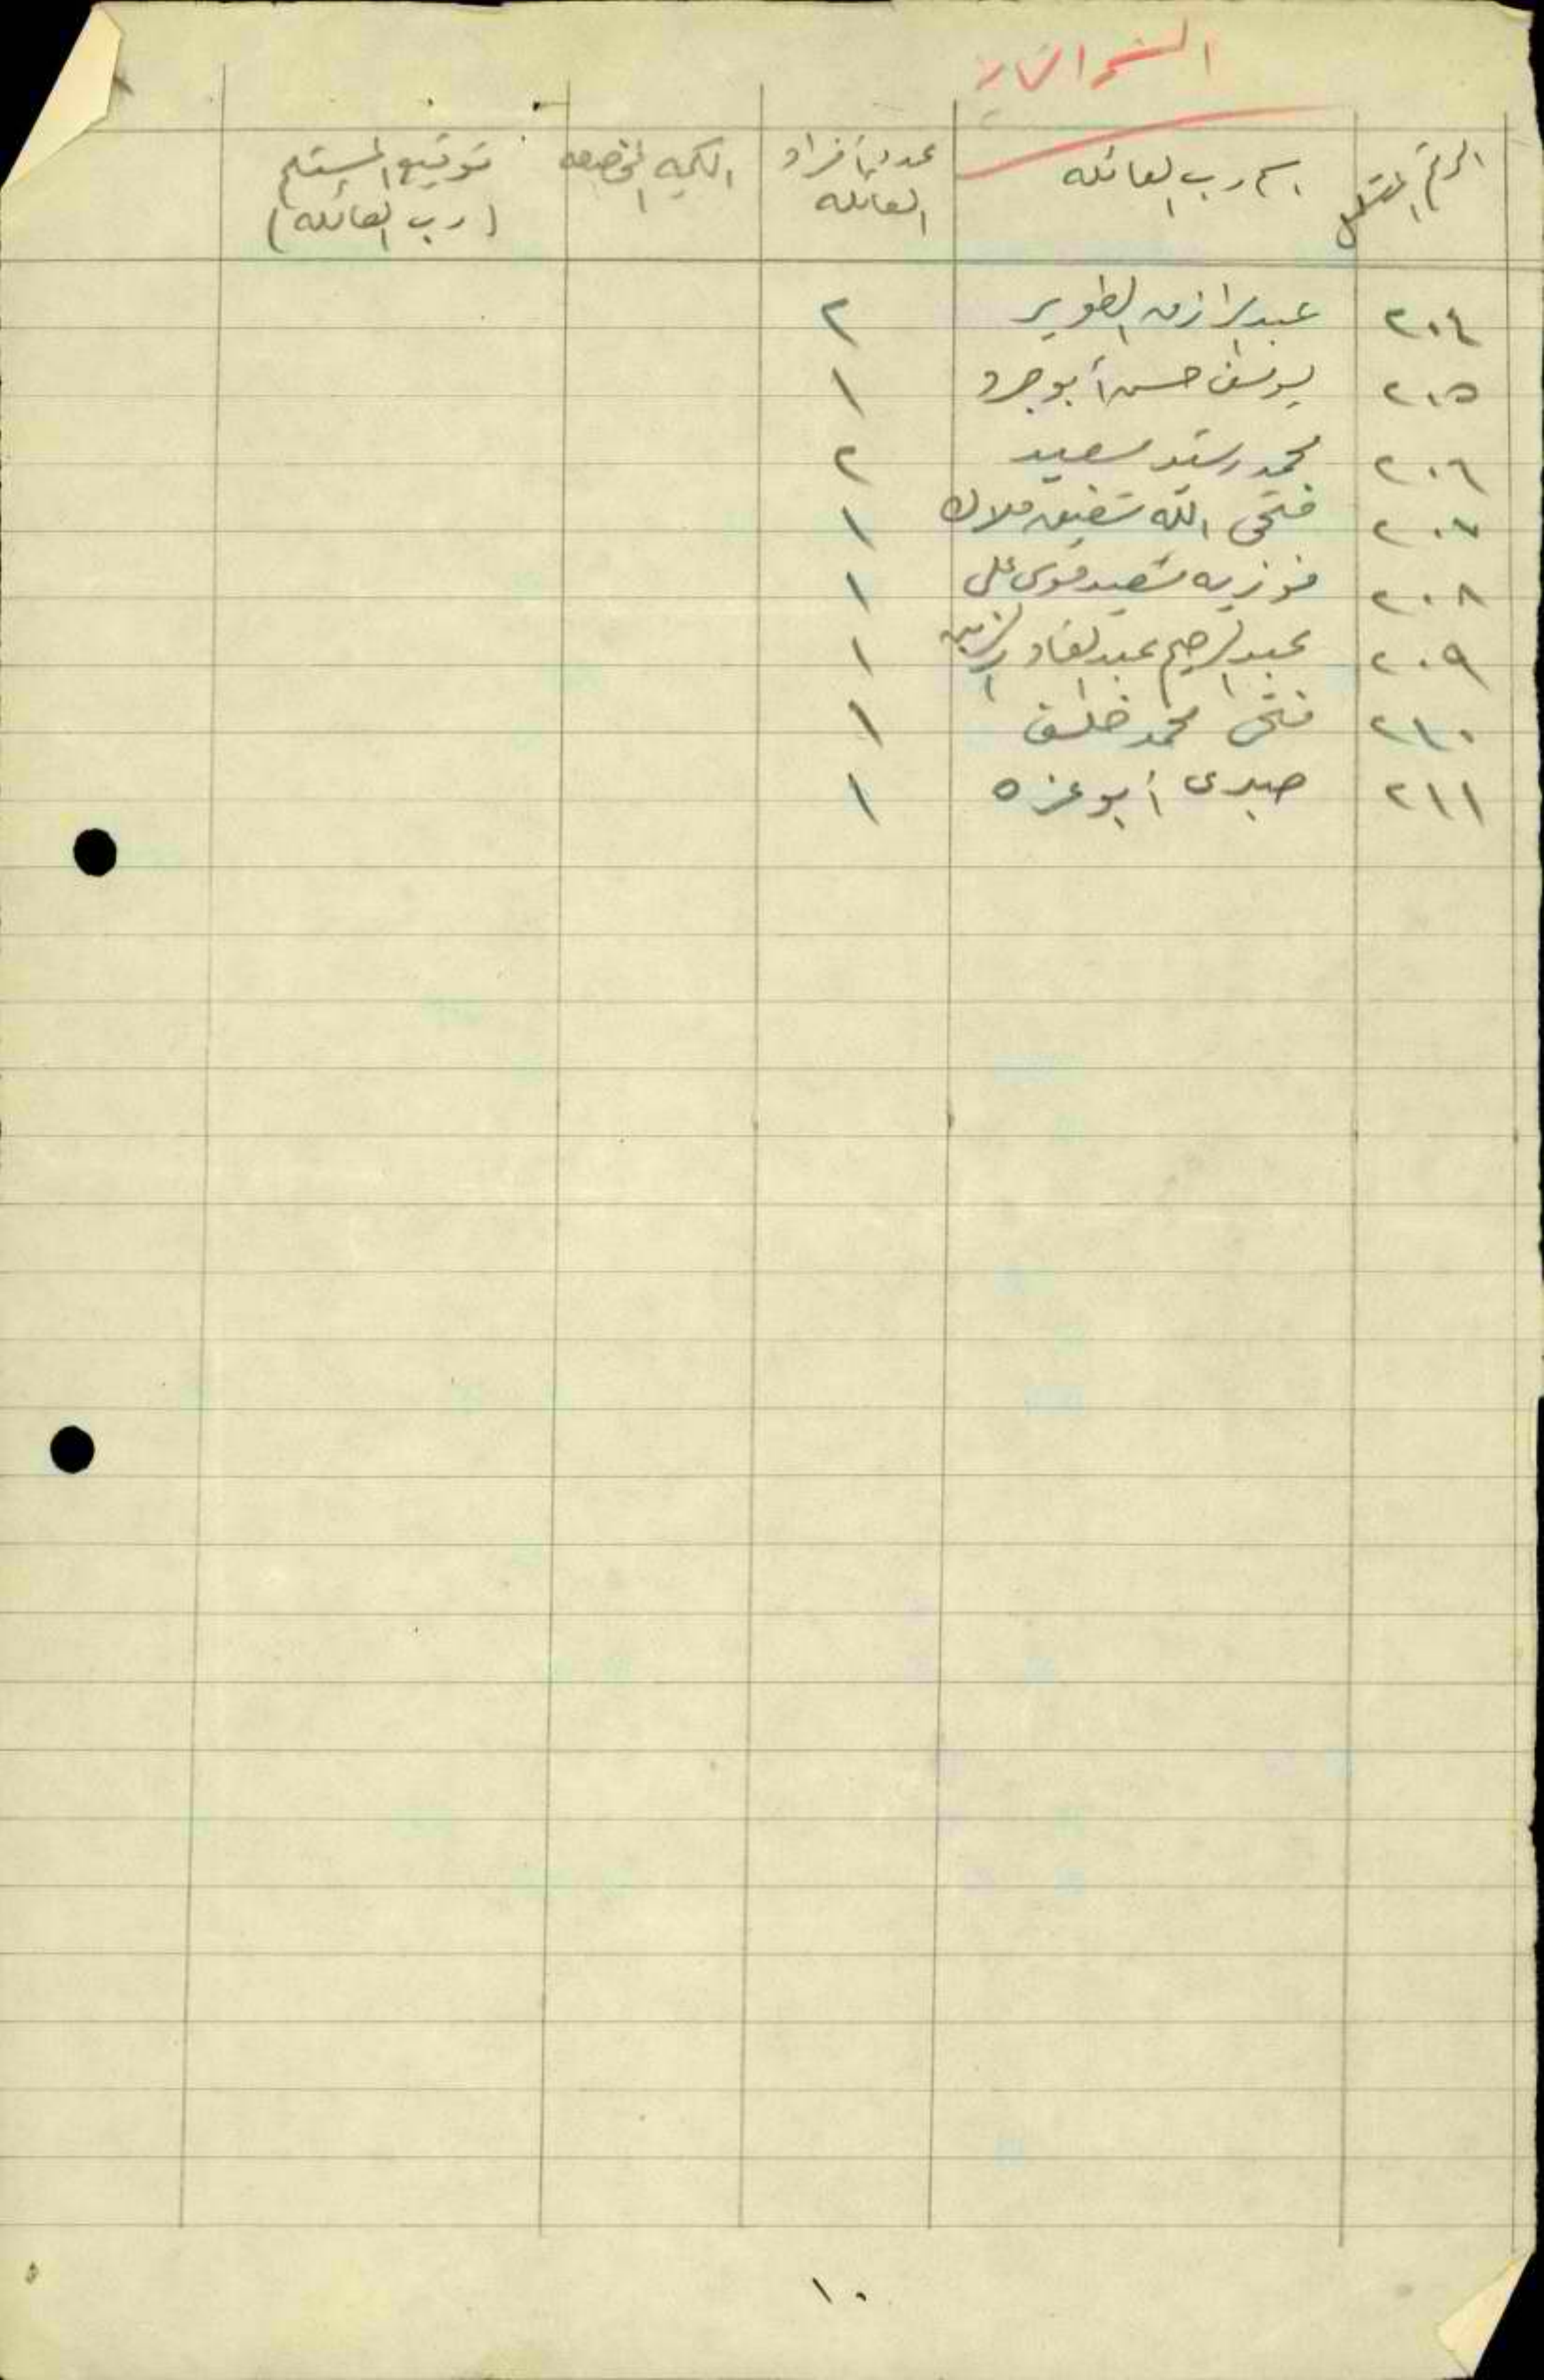 الرقم المتسلسل	اسم رب العائله	عدد أفراد العائله	الكميه المخصصه	توقيع المستلم (رب العائله)
٢٠٤	عبد الرازق الطوير	٢
٢٠٥	يوسف حسن أبو جرد	١
٢٠٦	محمد رشد سعيد	٢
٢٠٧	فتحى الله شفيق ملاك	١
٢٠٨	فوزيه سعيد موسى على	١
٢٠٩	عبد الرحيم عبد القادر	١
٢١٠	فتحى محمد خلف	١
٢١١	صبرى أبو عزه	١
١٠